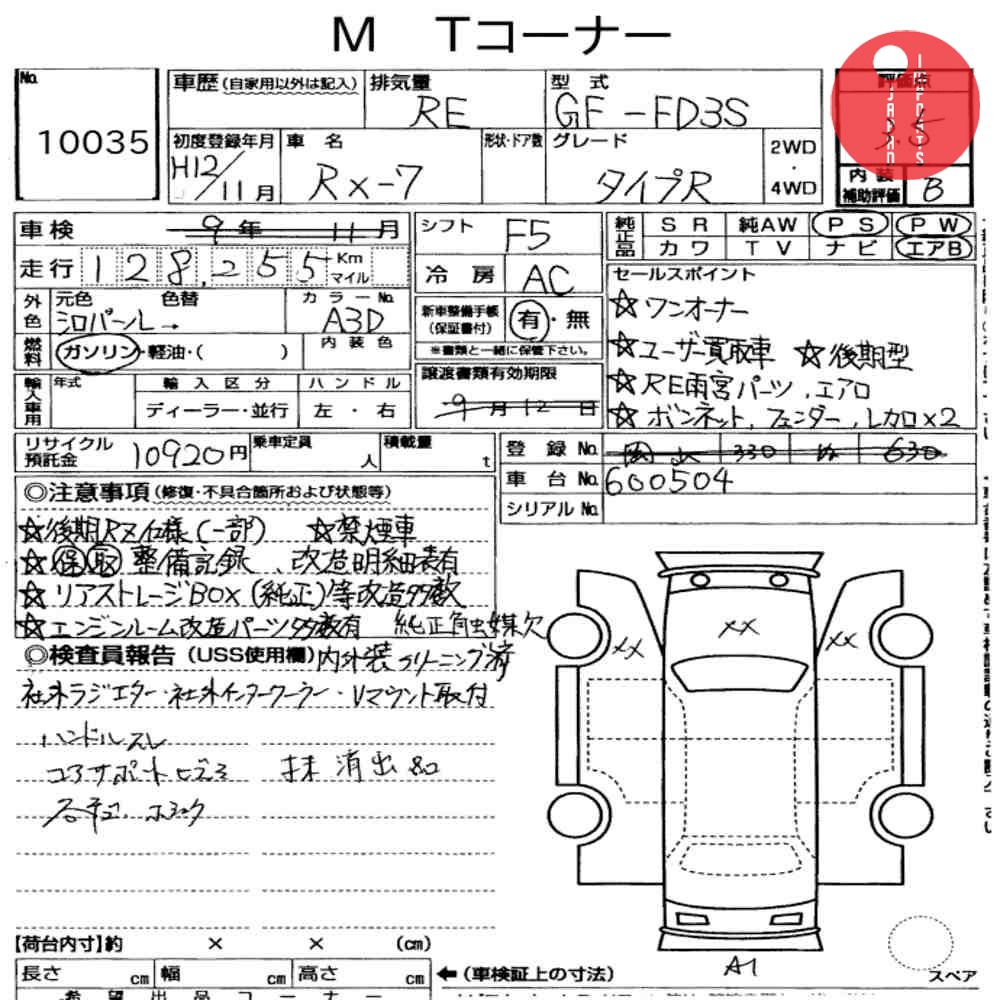 M Tコーナー
No.
10035
車歴(自家用以外は記入)
排気量
RE
型式
GF-FD3S
評価点
3.5
JAPAN IMPORTS
初度登録年月
H12/11月
車名
RX-7
形状・ドア数
グレード
タイプR
2WD
・
4WD
内装補助評価
B
車検 9年 11月
走行 128,255 Km マイル
シフト
F5
冷房
AC
純正品 SR 純AW PS PW
カワ TV ナビ エアB
外色 元色 色替
シロパール→
カラーNo.
A3D
燃料 ガソリン・軽油・( )
内装色
新車整備手帳(保証書付)
有・無
※書類と一緒に保管下さい。
輸入車用 年式 輸入区分 ハンドル
ディーラー・並行 左・右
譲渡書類有効期限
9月12日
セールスポイント
☆ワンオーナー
☆ユーザー買取車 ☆後期型
☆RE雨宮パーツ,エアロ
☆ボンネット,フェンダー,レカロ×2
リサイクル預託金 10920円
乗車定員 人
積載量 t
登録No. 330 630
車台No. 600504
シリアルNo.
◎注意事項(修復・不具合箇所および状態等)
☆後期RZ仕様(一部) ☆禁煙車
☆保取整備記録、改造明細表有
☆リアストレージBOX(純正)等改造多数
☆エンジンルーム改造パーツ多数有 純正触媒欠
◎検査員報告(USS使用欄)内外装クリーニング済
社外ラジエター・社外インタークーラー・Vマウント取付
ハンドルスレ
コアサポートヒズミ 抹消出品
XX XX XX
【荷台内寸】約 × × (cm)
長さ cm 幅 cm 高さ cm
←(車検証上の寸法)
A1
スペア
希望出品コーナー